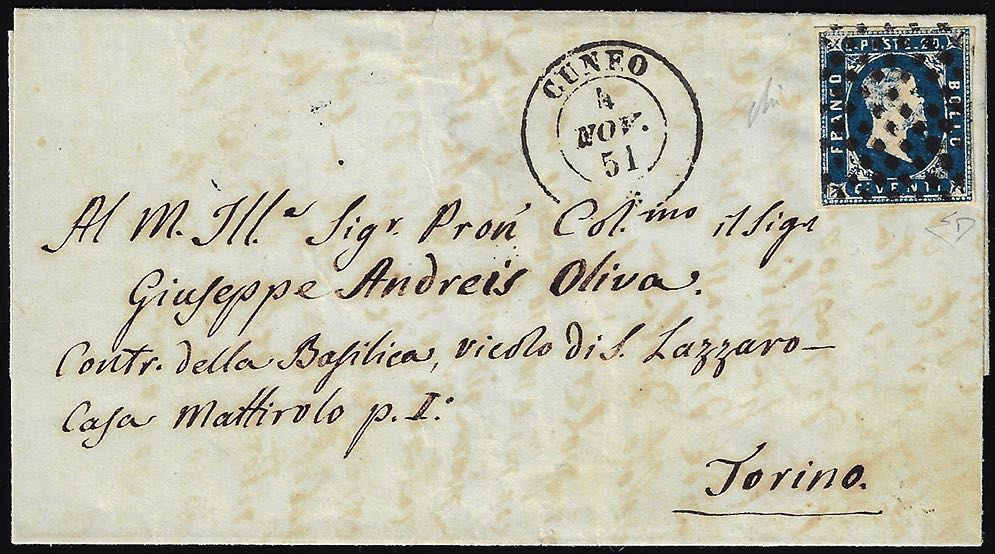 C. POSTE 20.
FRANCO
BOLLO
C. VENTI
CUNEO
4
NOV.
51
Al M. Ill.e Sigr. Pron̄ Col.mo il Sigr
Giuseppe Andreis Oliva.
Contr. della Basilica, vicolo di S. Lazzaro—
Casa Mattirolo p. I:
Torino.